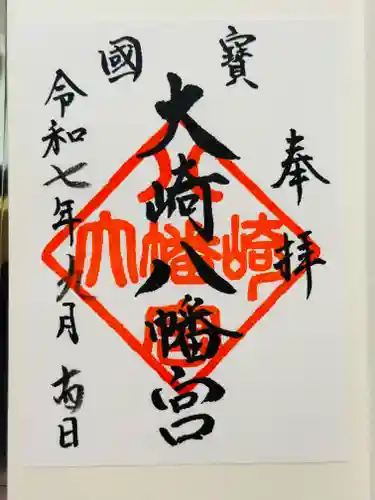 奉拝
寶國
大崎八幡宮
令和七年九月 吉日